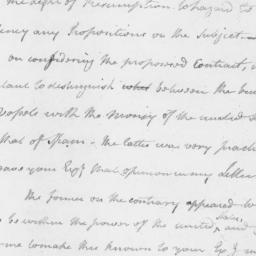 the right of Resumption. to hazard to
ency any Propositions on the Subject.
on considering the proposed Contract,
to distinguish what between the
with the Money of the united
that of Spain. The latter was very
gave your Exy that opinion in my Letter
The former on the contrary appeared
to be within the power of the united States, and
me to make this known to your Exy